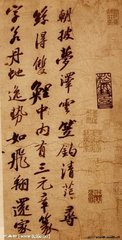 朝披夢澤雲笠釣清茫尋
絲得雙鯉中內有三元章篆
字若丹蛇逸勢如飛翔還家